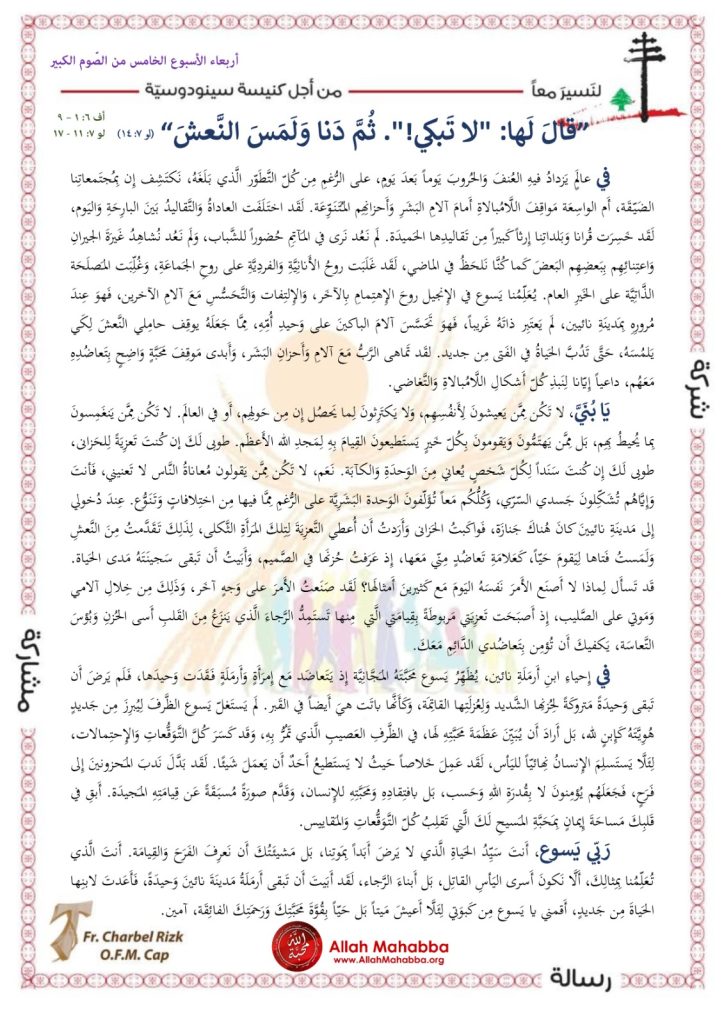 أربعاء الأسبوع الخامس من الصّوم الكبير
لنَسيرَ معاً
من أجل كنيسة سينودوسيّة
أف ٦: ١ – ٩
لو ٧: ١١ - ١٧
”قالَ لَها: "لا تَبكي!". ثُمَّ دَنا وَلَمَسَ النَّعشَ“ (لو ٧: ١٤)
في عالمٍ يَزدادُ فيهِ العُنفَ وَالحُروبَ يَوماً بَعدَ يَومٍ، على الرُّغمِ مِن كُلّ التَّطوّر الَّذي بَلَغَهُ، نَكتَشِف إن بِمُجتَمعاتِنا
الضيّقَة، أم الواسِعَة مَواقِفَ اللَّامُبالاةِ أمامَ آلامِ البَشَرِ وَأحزانِهِم المُتَنَوِّعَة. لَقَد اختَلَفَت العاداةُ وَالتَّقاليدُ بَينَ البارِحَةِ وَاليَوم،
لَقَد خَسِرَت قُرانا وَبَلداتِنا إرثاً كَبيراً مِن تَقاليدِها الحَميدَة. لَم نَعُد نَرى في المَآتِمِ حُضوراً للشَّباب، وَلَم نَعُد نُشاهِدُ غَيرَةَ الجيرانِ
وَاعتِنائِهِم بِبَعضِهِم البَعضَ كَما كُنَّا نَلحَظُ في الماضي، لَقَد غَلَبَت روحُ الأنانِيَّةِ وَالفَرديَّةِ على روحِ الجَماعَةِ، وَغُلِّبَت المَصلَحَة
الذَّاتِيَّة على الخَيرِ العام. يُعَلِّمُنا يَسوع في الإنجيل روحَ الإهتِمامِ بِالآخَر، وَالإلتِفات وَالتَّحَسُّس مَعَ آلامِ الآخَرين، فَهوَ عِندَ
مُرورِهِ بِمَدينَةِ نائيين، لَم يَعتَبِر ذاتَهُ غَريباً، فَهوَ تَحَسَّسَ آلامَ الباكينَ على وَحيدِ أُمِّهِ، مِمَّا جَعَلَهُ يوقِف حامِلي النَّعشَ لِكَي
يَلمُسَهُ، حَتَّى تَدُبَّ الحَياةُ في الفَتى مِن جديد. لَقَد تَماهى الرَّبُّ مَعَ آلامِ وَأحزانِ البَشَر، وَأبدى مَوقِفَ مَحَبَّةٍ واضِحٍ بِتَعاضُدِهِ
مَعَهُم، داعياً إيّانا لِنَبذِ كُلّ أشكالِ اللَّامُبالاةِ وَالتَّغاضي.
يَا بُنَيَّ، لا تَكُن مِمَّن يَعيشونَ لِأنفُسِهِم، وَلا يَكتَرِثونَ لِما يَحصُل إن مِن حَولِهِم، أو في العالَم. لا تَكُن مِمَّن يَنغَمِسونَ
بِما يُحيطُ بِهِم، بَل مِمَّن يَهتَمُّونَ وَيَقومونَ بِكُلّ خَيرٍ يَستَطيعونَ القِيامَ بِهِ لِمَجدِ الله الأعظَم. طوبى لَكَ إن كُنتَ تَعزِيَةً لِلحَزانى،
طوبى لَكَ إن كُنتَ سَنَداً لِكُلّ شَخصٍ يُعاني مِنَ الوَحدَةِ وَالكآبَة. نَعَم، لا تَكُن مِمَّن يَقولون مُعاناةُ النَّاس لا تَعنيني، فَأنتَ
وَإيَّاهُم تُشَكِّلونَ جَسدي السرّي، وَكُلُّكُم مَعاً تُؤَلِّفونَ الوَحدة البَشَريَّة على الرُّغمِ مِمَّا فيها مِن اختِلافاتٍ وَتَنَوُّع. عِندَ دُخولي
إلى مَدينَةِ نائيينَ كانَ هُناكَ جَنازَة، فَواكَبتُ الحَزانى وَأرَدتُ أن أُعطي التَّعزِيَةَ لِتِلكَ المَرأةِ الثَّكلى، لِذَلِكَ تَقَدَّمتُ مِنَ النَّعشِ
وَلَمَستُ فَتاها لِيَقومَ حَيّاً، كَعَلامَةِ تَعاضُدٍ مِنّي مَعَها، إذ عَرَفتُ حُزنَها في الصَّميم، وَأبَيتُ أن تَبقى سَجينَتَهُ مَدى الحَياة.
قَد تَسأل لِماذا لا أصنَع الأمرَ نَفسَهُ اليَومَ مَع كَثيرينَ أمثالَها؟ لَقَد صَنَعتُ الأمرَ على وَجهٍ آخَر، وَذَلِكَ مِن خِلالِ آلامي
وَمَوتي على الصَّليب، إذ أصبَحَت تَعزِيَتي مَربوطَةً بِقِيامَتي الَّتي مِنها تَستَمِدُّ الرَّجاءَ الَّذي يَنزَعُ مِنَ القَلبِ أسى الحُزنِ وَبُؤسَ
التَّعاسَة، يَكفيكَ أن تُؤمِن بِتَعاضُدي الدَّائِمِ مَعَكَ.
في إحياءِ ابنِ أرمَلَةِ نائين، يُظَهِّرُ يَسوع مَحَبَّتَهُ المَجَّانيَّة إذ يَتَعاضَد مَع إمرَأةٍ وَأرمَلَةٍ فَقَدَت وَحيدَها، فَلَم يَرضَ أن
تَبقى وَحيدةً مَتروكَةً لِحُزنِها الشَّديد وَلِعُزلَتِها القاتِمَة، وَكَأنَّها باتَت هيَ أيضاً في القَبر. لَم يَستَغلّ يَسوع الظَّرفَ لِيُبرِزَ مِن جَديدٍ
هُويَّتَهُ كَإبنٍ لله، بَل أرادَ أن يُبَيِّنَ عَظَمَةَ مَحَبَّتِهِ لَها، في الظَّرفِ العَصيبِ الَّذي تَمُرُّ بِهِ، وَقَد كَسَرَ كُلَّ التَّوَقُّعاتِ وَالإحتِمالات،
لِئَلَّا يَستَسلِمَ الإنسانُ نِهائيّاً لليَأس، لَقَد عَمِلَ خَلاصاً حَيثُ لا يَستَطيعُ أحَدٌ أن يَعمَلَ شَيئًا. لَقَد بَدَّلَ نَدبَ المَحزونينَ إلى
فَرَحٍ، فَجَعَلَهُم يُؤمِنونَ لا بِقُدرَةِ اللهِ وَحَسب، بَل بافتِقادِهِ وَمَحَبَّتِهِ للإنسان، وَقَدَّم صورَةً مُسبَقَةً عَن قِيامَتِهِ المَجيدَة. أبقِ في
قَلبِكَ مَساحَةَ إيمانٍ بِمَحَبَّةِ المَسيحِ لَكَ الَّتي تَقلِبُ كُلّ التَّوَقُّعاتِ وَالمَقاييس.
رَبِّي يَسوع، أنتَ سَيِّدُ الحَياةِ الَّذي لا يَرضَ أبَداً بِمَوتِنا، بَل مَشيئَتُكَ أن نَعرِفَ الفَرَحَ وَالقِيامَة. أنتَ الَّذي
تُعَلِّمُنا بِمِثالِكَ، ألَّا نَكونَ أسرى اليَأسِ القاتِل، بَل أبناءَ الرَّجاء، لَقَد أبَيتَ أن تَبقى أرمَلَةُ مَدينَة نائينَ وَحيدَةً، فَأعَدتَ لابنِها
الحَياةَ مِن جَديدٍ، أقمني يا يَسوع مِن كَبوَتي لِئَلَّا أعيشَ مَيتاً بَل حَيّاً بِقُوَّةِ مَحَبَّتِكَ وَرَحمَتِكَ الفائِقَة، آمين.
شركة
مشاركة
رسالة
Fr. Charbel Rizk
O.F.M. Cap
الله محبة
Allah Mahabba
www.AllahMahabba.org